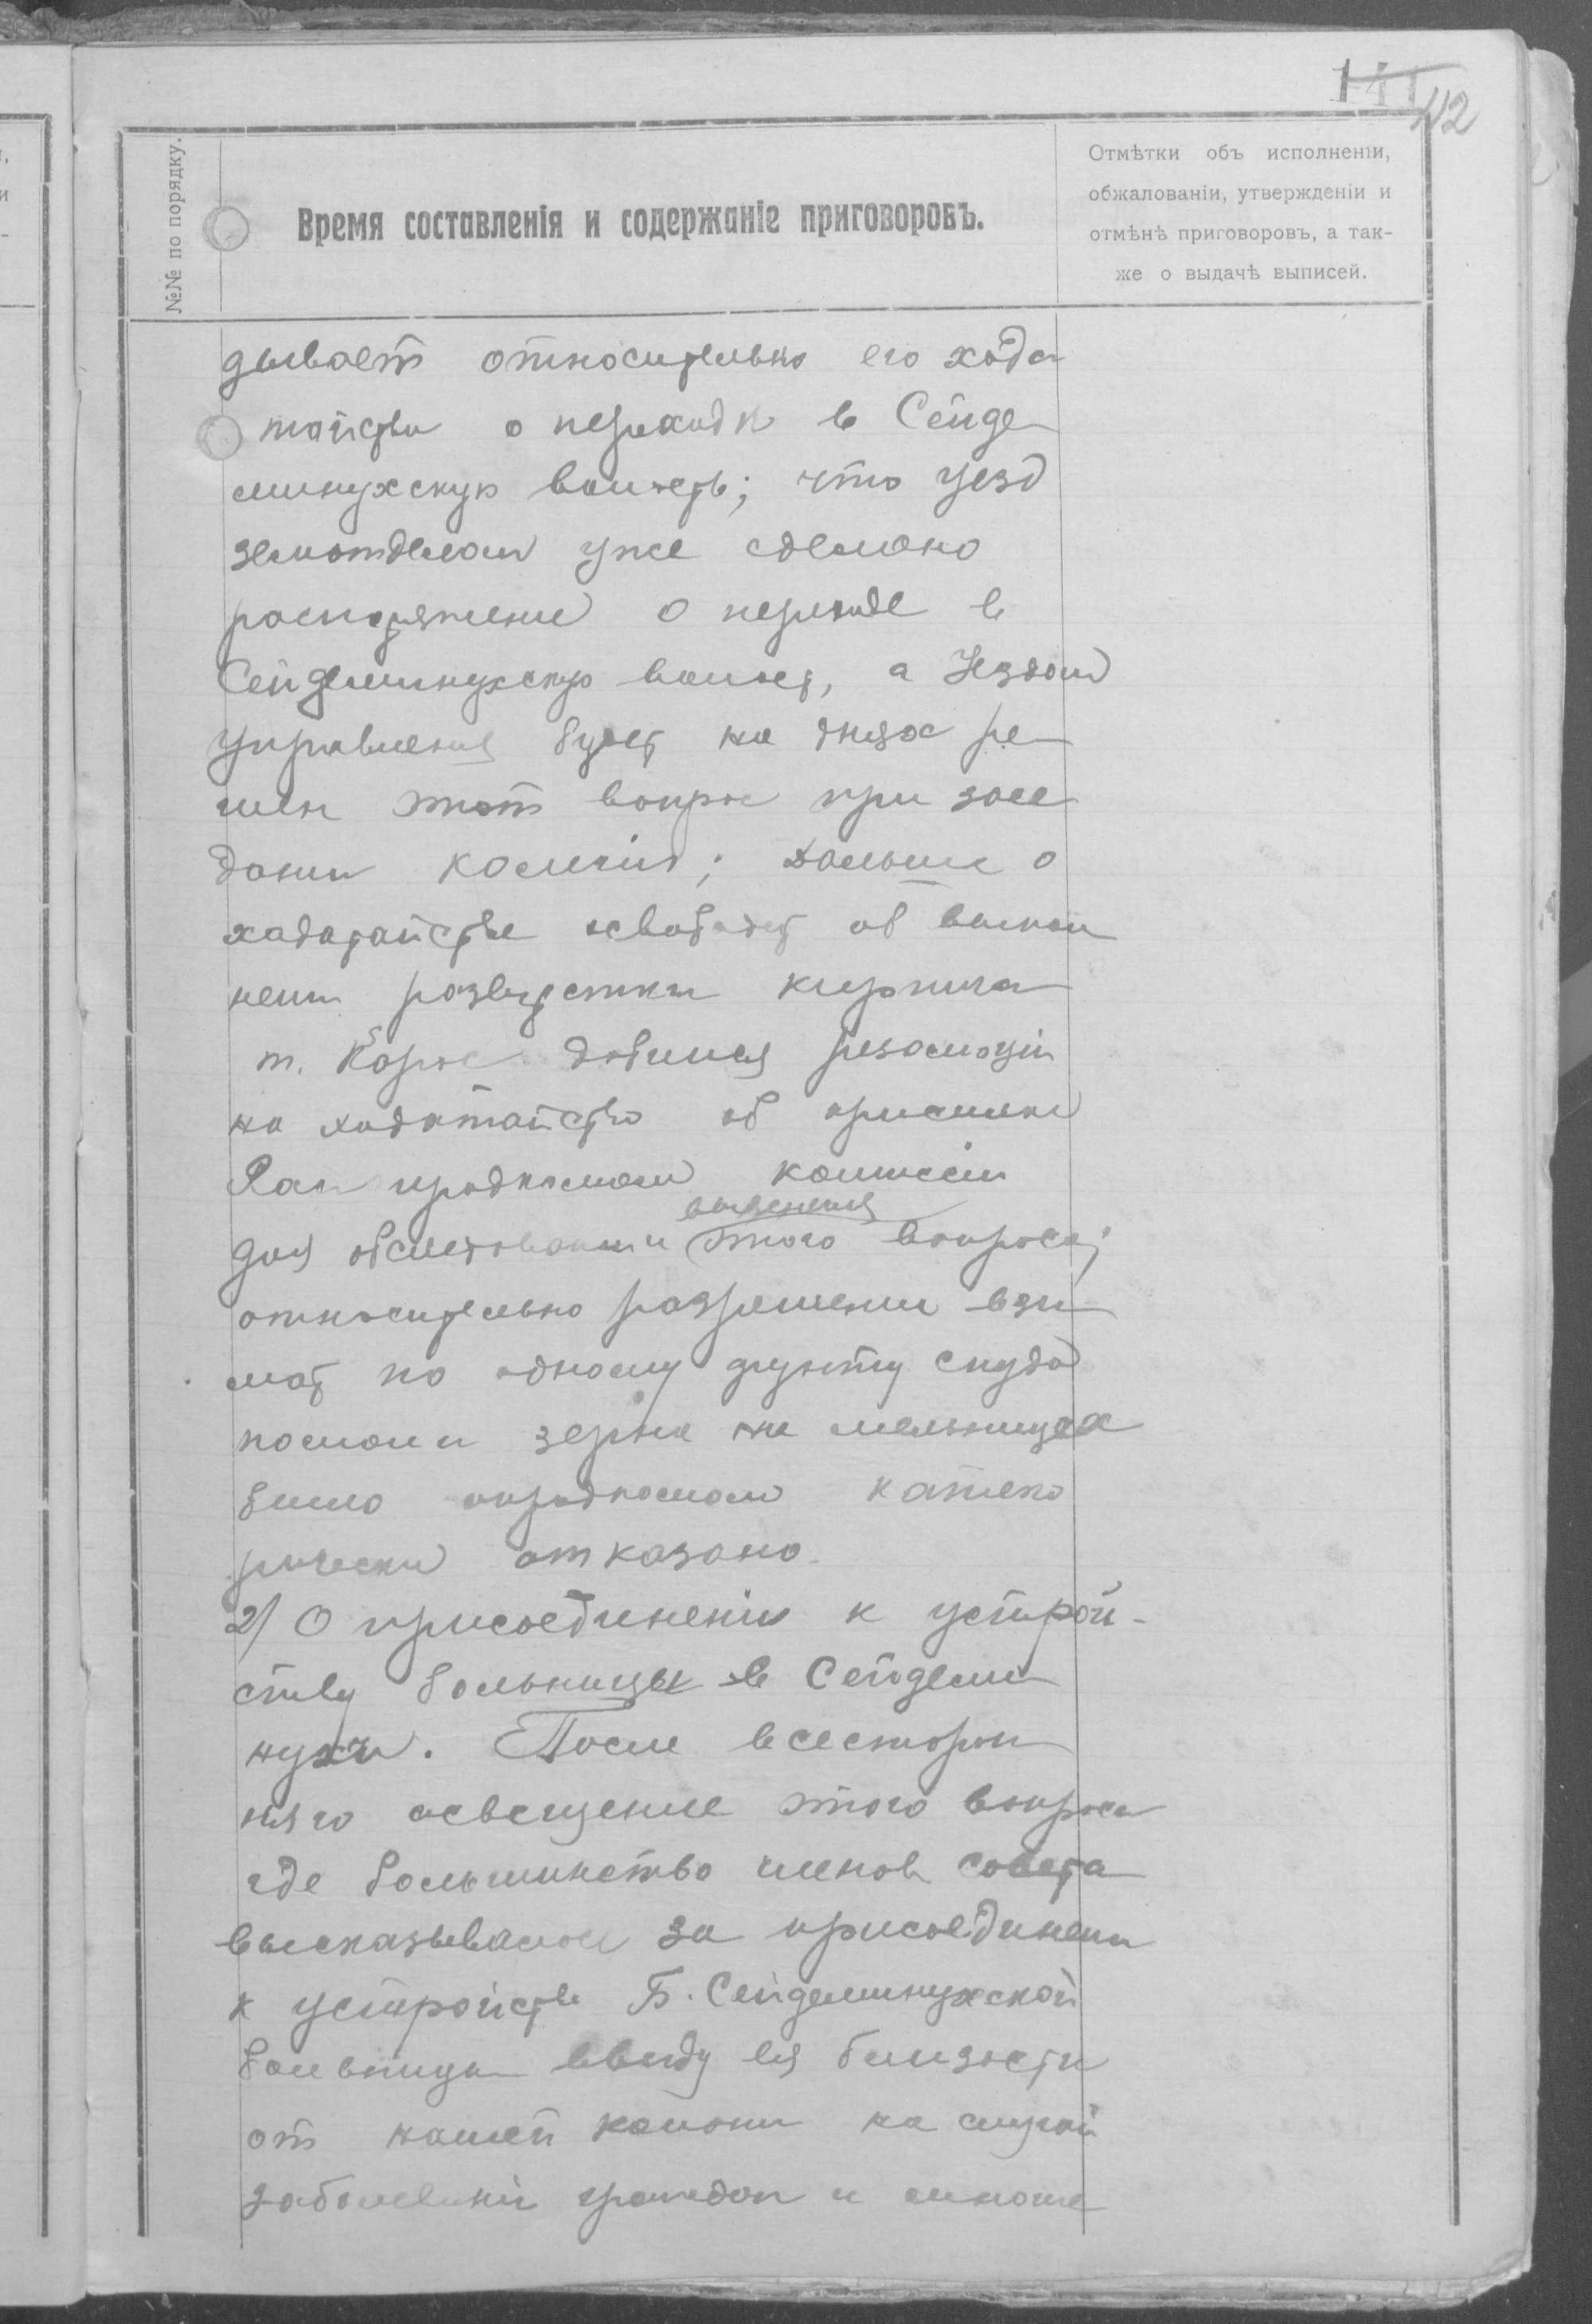 141
112
№№ по порядку.
Время составленія и содержаніе приговоровъ.
Отмѣтки объ исполненіи,
обжалованіи, утвержденіи и
отмѣнѣ приговоровъ, а так-
же о выдачѣ выписей.
дывает относительно его хода
тайства о переходѣ в Сейде
минухскую волость; что уезд
земотделом уже сделано
распоряжение о переходе в
Сейдеминухскую волост, а Уездом
управления будет на днях ре
шен этот вопрос при засе
дании колегіи; дальше о
хадатайстве освободит об выпол
нении разверстки кирпича
т. добился резолюціи
на ходатайство об
Рай продкомом комиссіи
для обследования и выяснения этого вопроса;
относительно разрешения взи
мат по одному фунту с пуда
помола зерна на мельницах
было опродкомом катего
рически отказано.
2) О присоединеніи к устрой-
ству больницы в Сейдеми
нухи. После всесторон
няго освещение этого вопроса
где большинство членов совета
высказывалось за присоединении
к устройстве Б. Сейдеминухской
больницы ввиду ея близости
от нашей колонии на случай
заболеваній граждан и